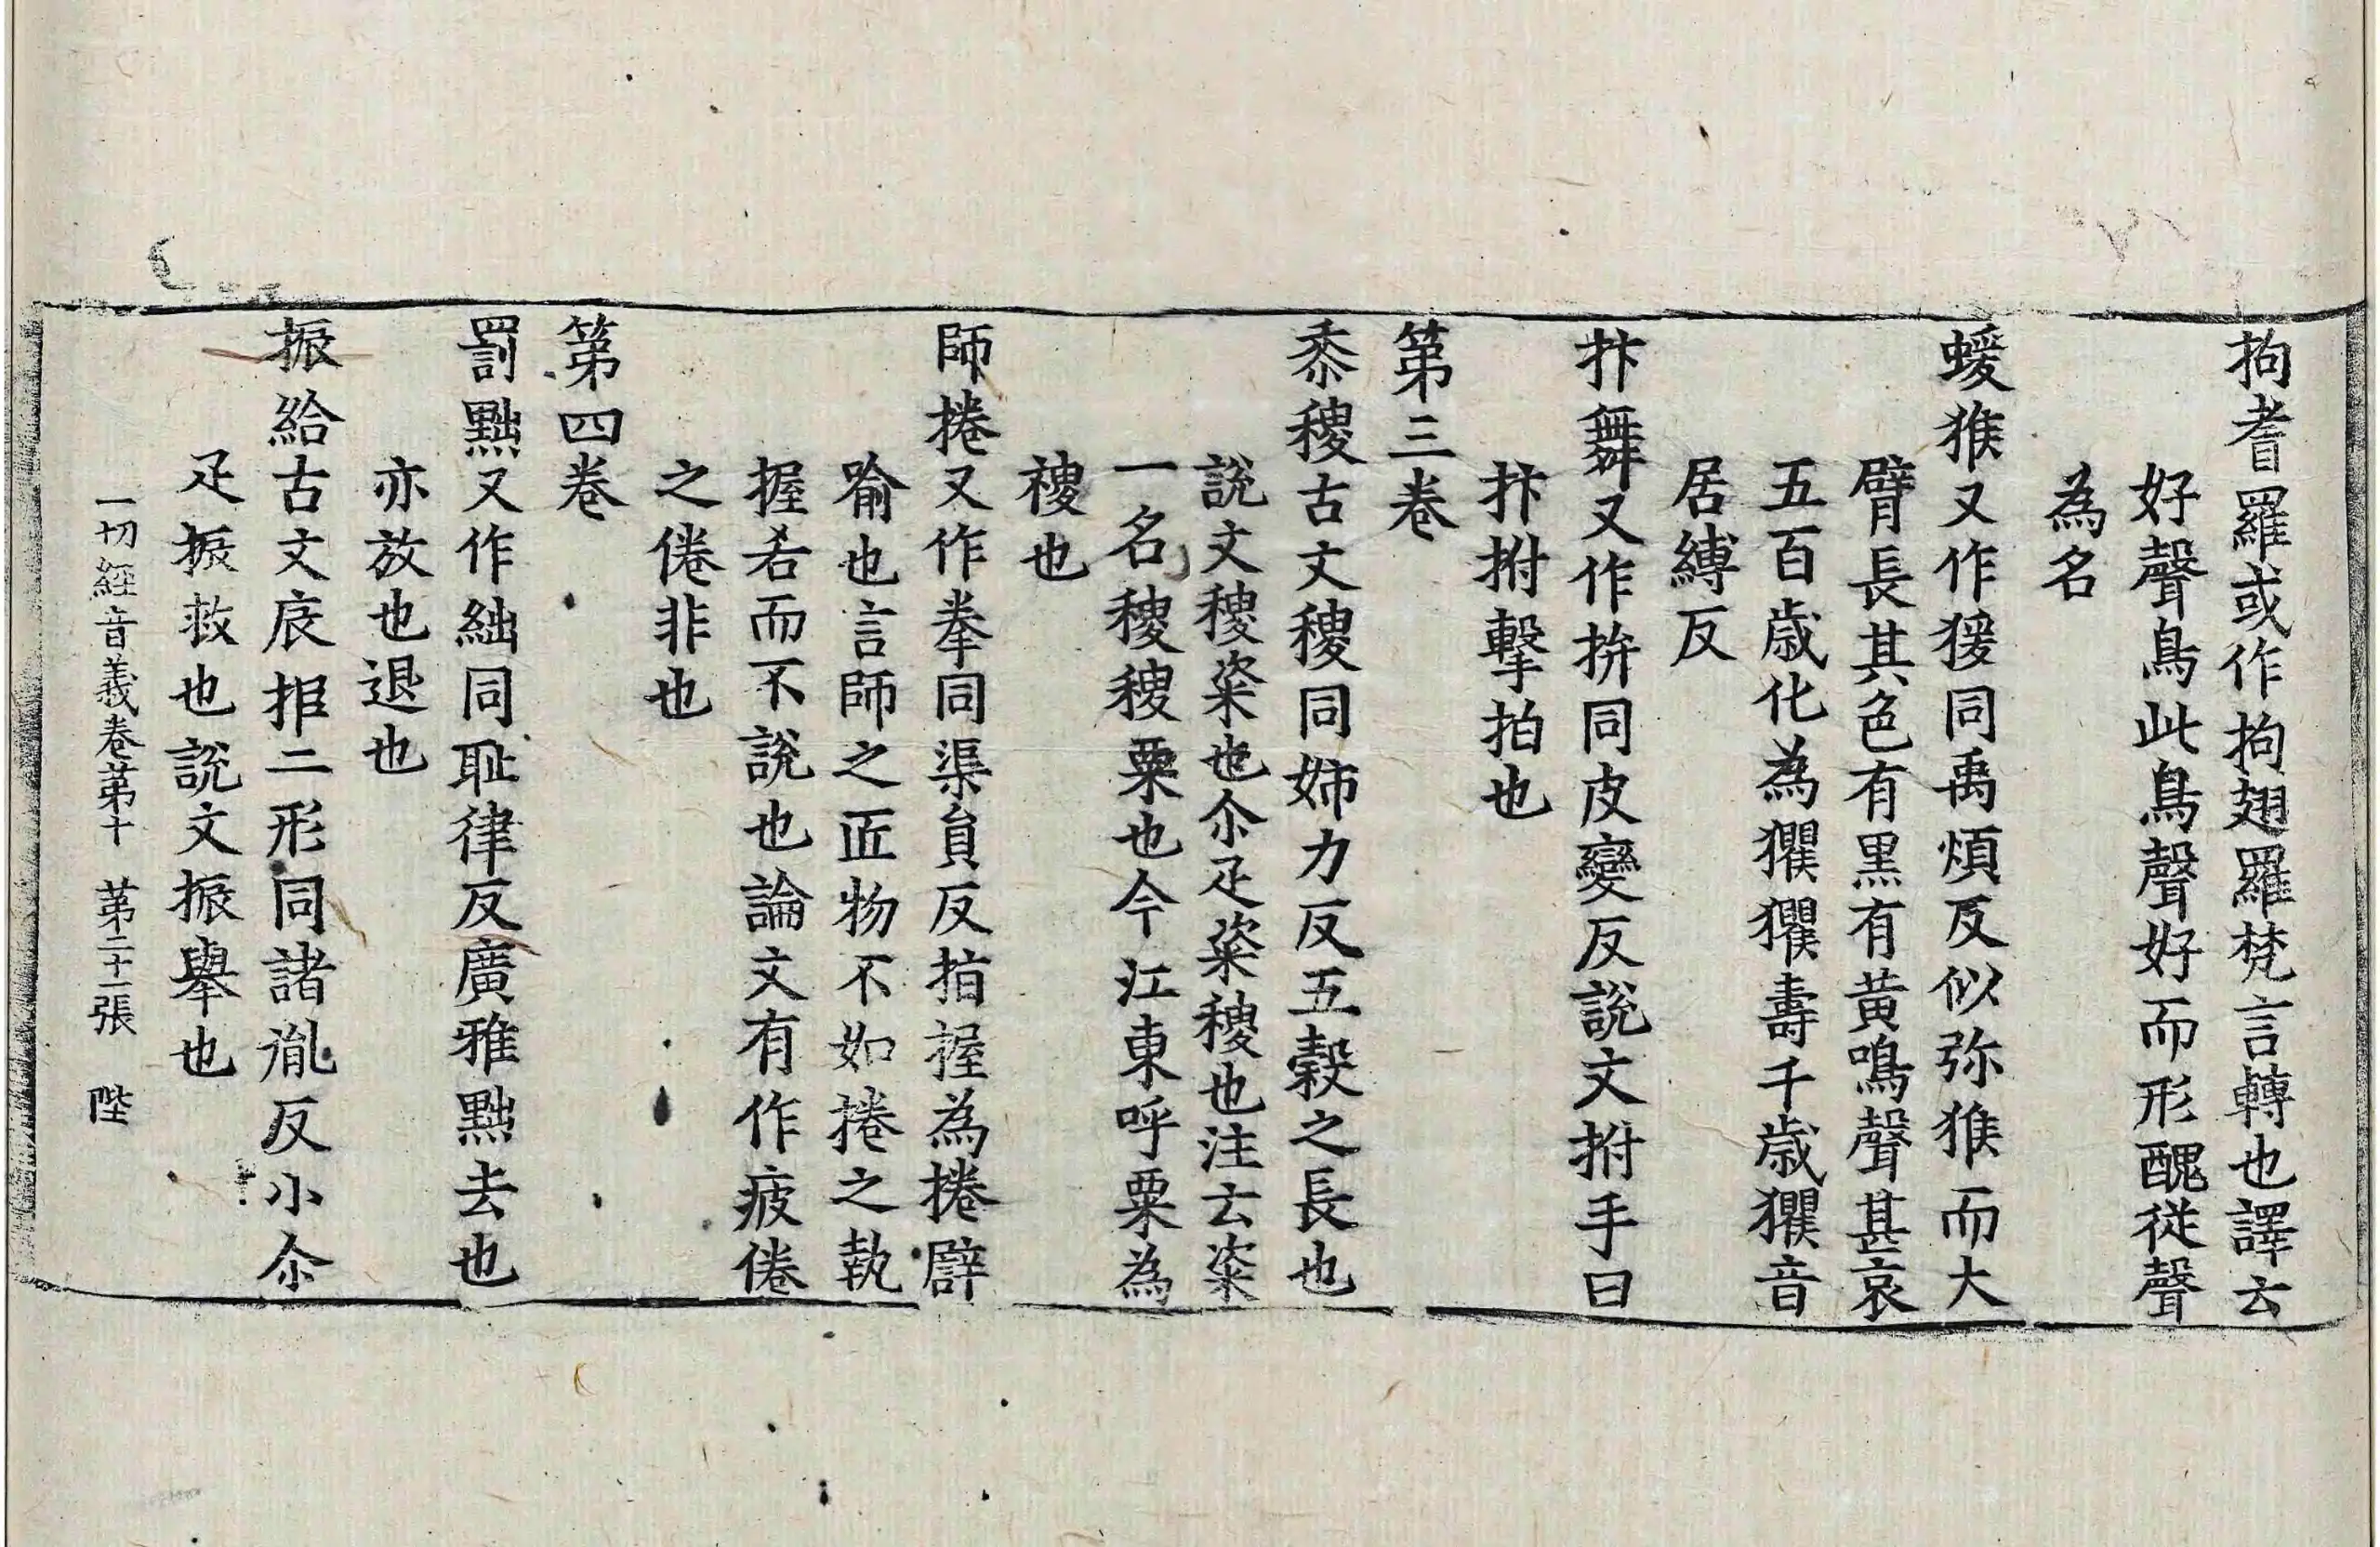 拘耆羅或作拘翅羅梵言轉也譯云
好聲鳥此鳥聲好而形醜從聲
為名
蝯猴又作猨同禹煩反似弥猴而大
臂長其色有黑有黃鳴聲甚哀
五百歲化為玃玃壽千歲玃音
居縛反
抃舞又作拚同皮變反說文拊手曰
抃拊擊拍也
第三卷
黍稷古文稷同姉力反五穀之長也
說文稷粢也尒疋粢稷也注云粢
一名稷稷粟也今江東呼粟為
稷也
師捲又作拳同渠負反指握為捲辟
喻也言師之匠物不如捲之執
握若而不說也論文有作疲倦
之倦非也
第四卷
罰黜又作絀同耻律反廣雅黜去也
亦放也退也
振給古文㧗拒二形同諸胤反小尒
疋振救也說文振舉也
一切經音義卷第十　第二十二張　陛